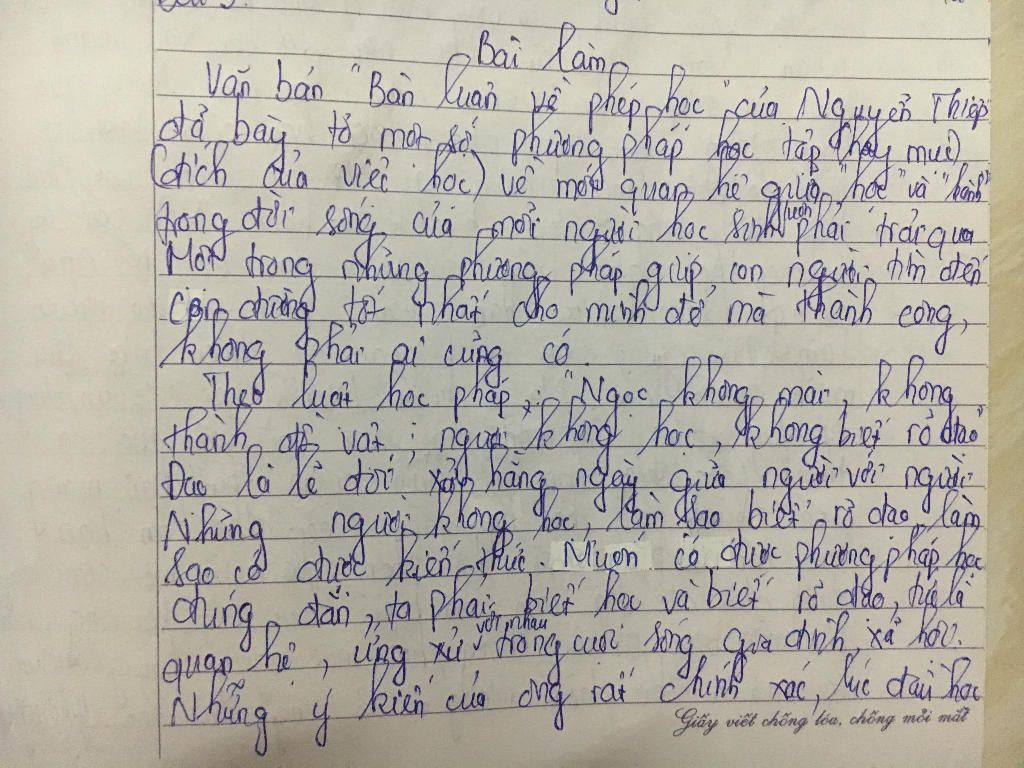 Bài làm
Văn bản "Bàn luận về phép học" của Nguyễn Thiếp
đã bày tỏ một số phương pháp học tập (hay mục)
(đích của việc học) về mối quan hệ giữa "học" và "hành"
trong đời sống của mỗi người học sinh luôn phải trải qua
Một trong những phương pháp giúp con người tìm đến
con đường tốt nhất cho mình để mà thành công,
không phải ai cũng có.
Theo luật học pháp, "Ngọc không mài, không
thành đồ vật; người không học, không biết rõ đạo"
Đạo là lẽ đối xử hằng ngày giữa người với người.
Những người không học, làm sao biết rõ đạo, làm
sao có được kiến thức. Muốn có được phương pháp học
đúng đắn, ta phải biết học và biết rõ đạo, tức là
quan hệ, ứng xử với nhau trong cuộc sống gia đình, xã hội.
Những ý kiến của ông rất chính xác, lúc đầu học
Giấy viết chống lóa, chống mỏi mắt